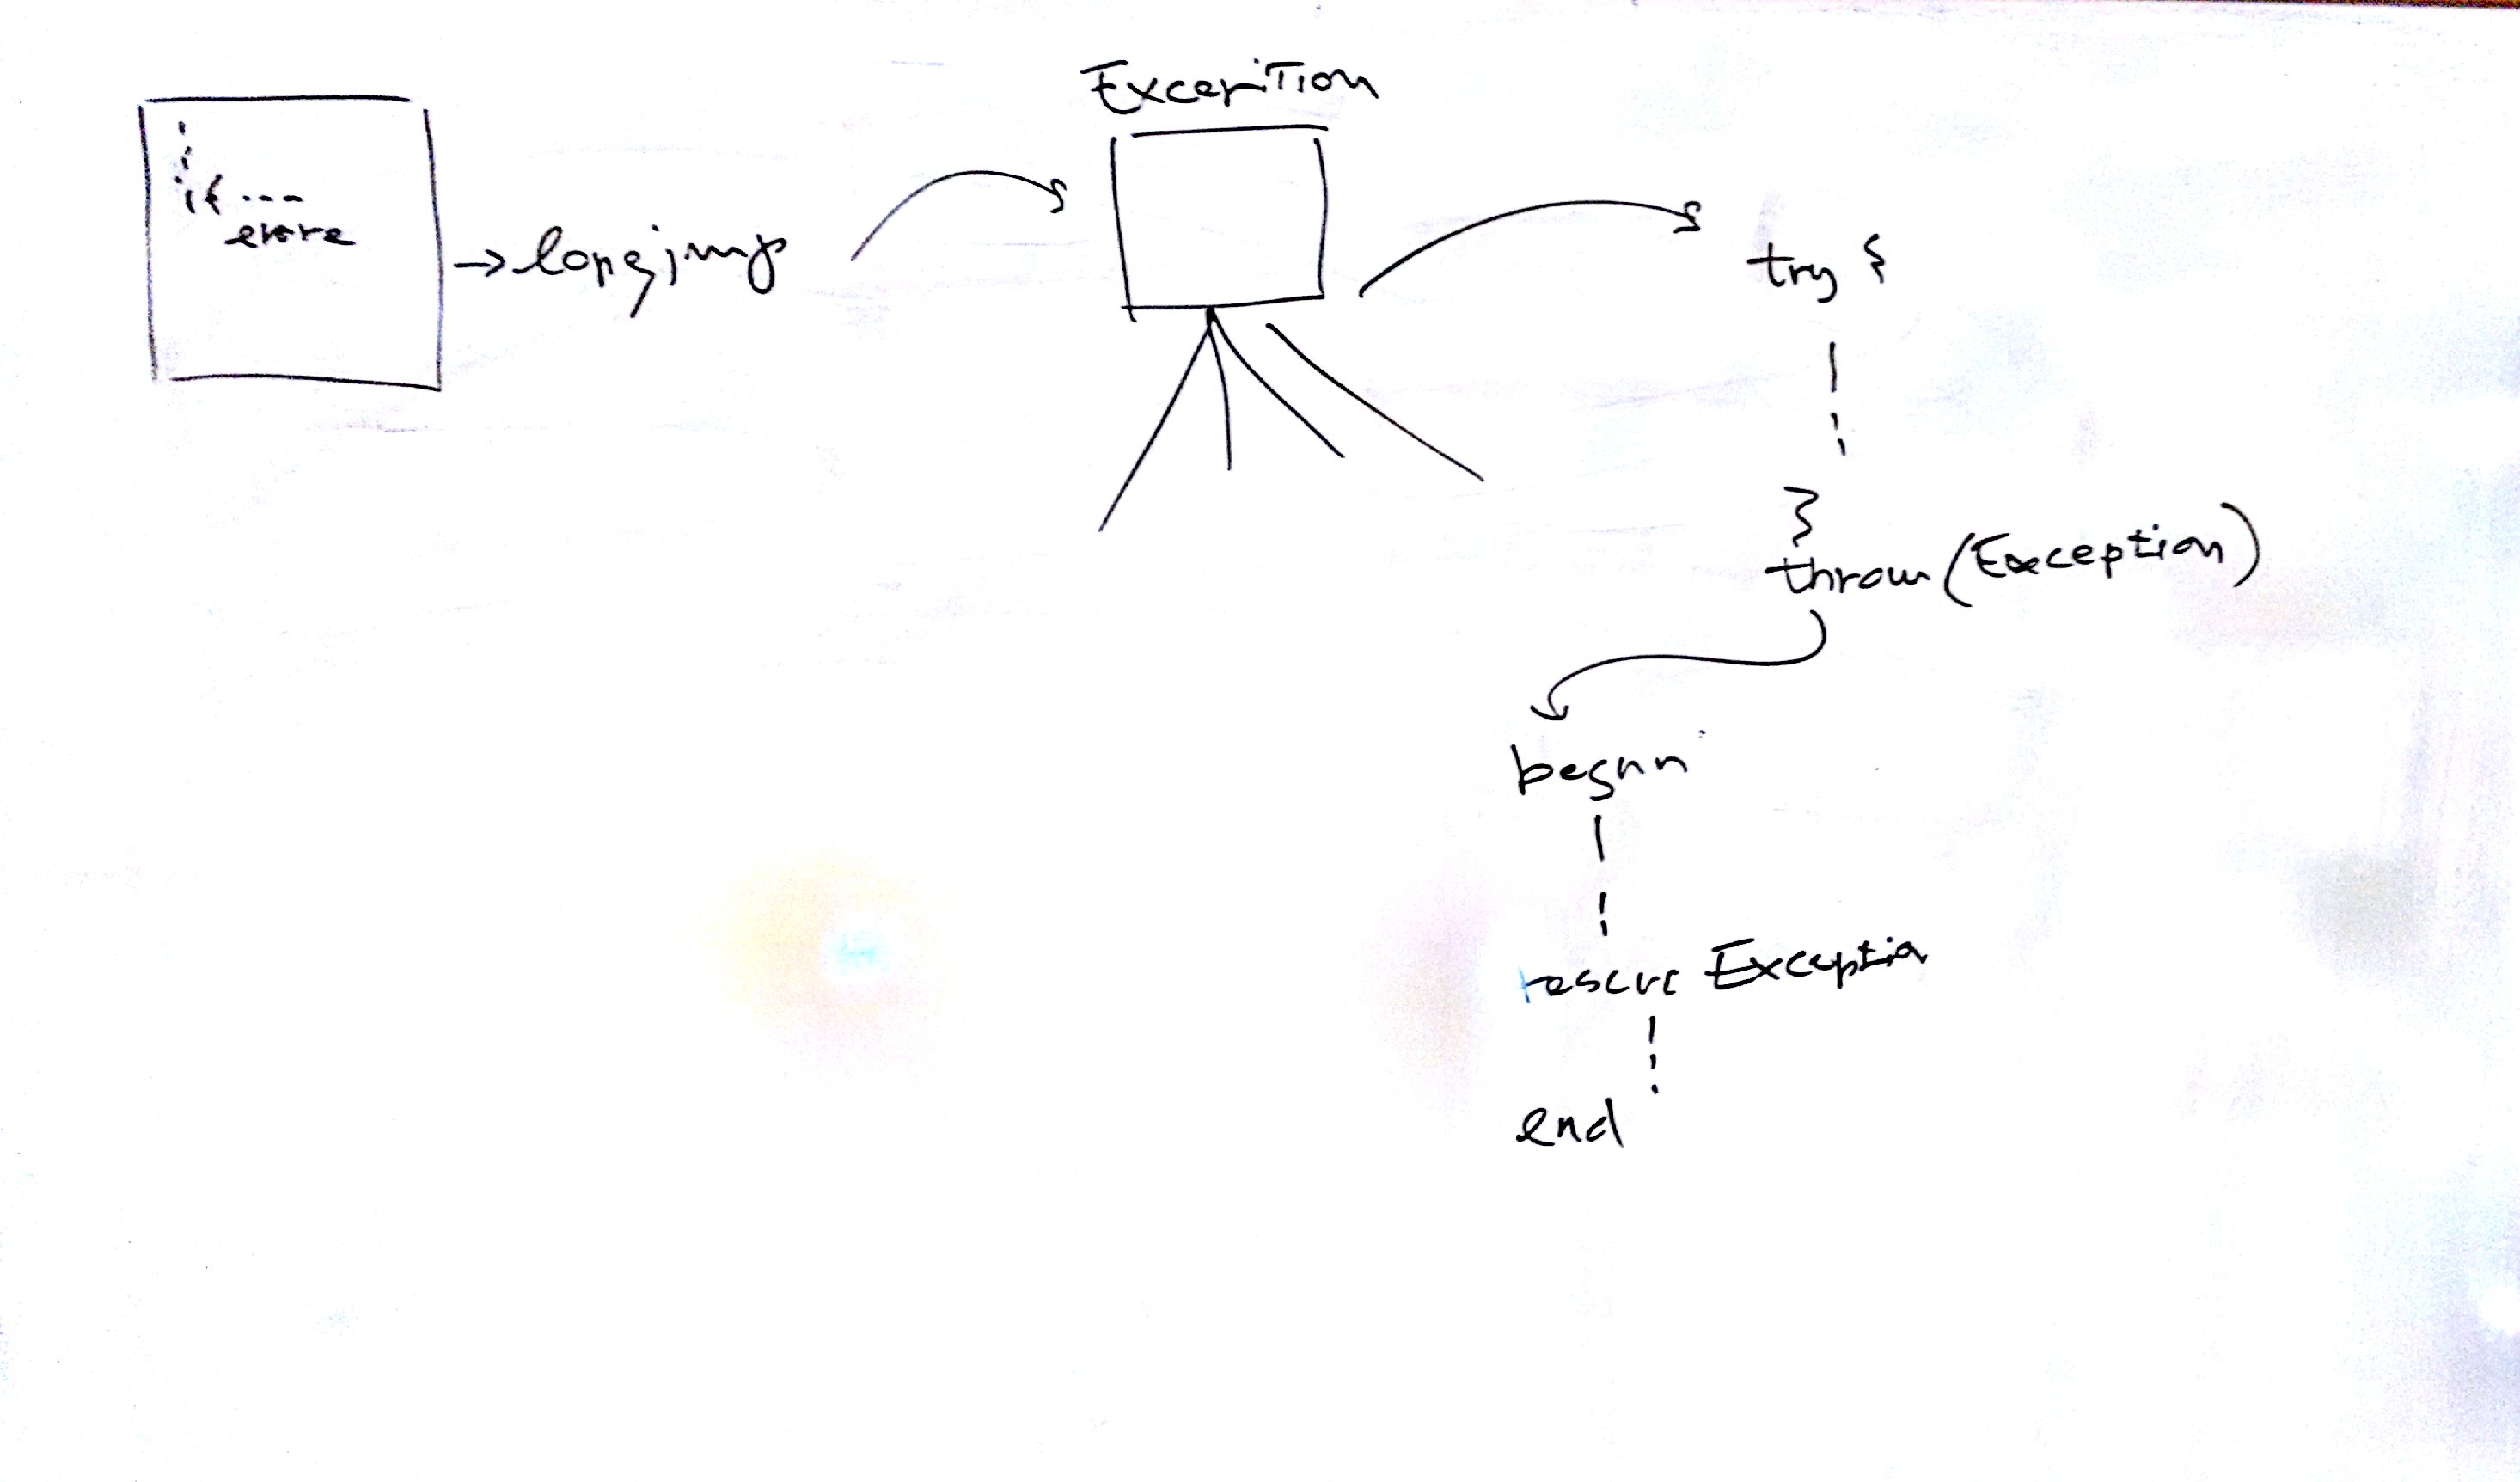 if ---
→ longjmp
Exception
try {
}
throw (Exception)
begin
rescue Exception
end